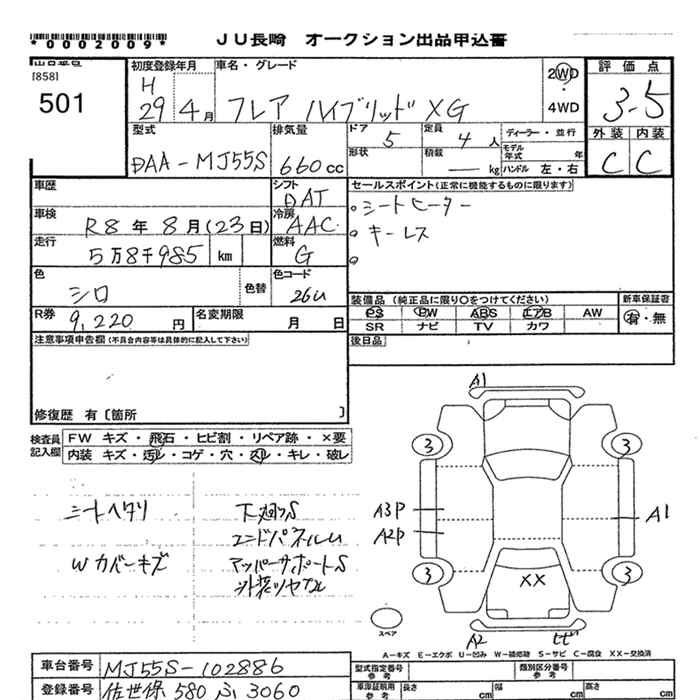 *0002009*
JU長崎 オークション出品申込書
出品番号
[858]
501
初度登録年月
H
29 4月
車名・グレード
フレア ハイブリッド XG
2WD
4WD
評価点
3.5
外装 内装
C C
型式
DAA-MJ55S
排気量
660cc
ドア 5
形状
定員 4人
積載 ― kg
ディーラー・並行
モデル年式 年
ハンドル 左・右
車歴
シフト
DAT
セールスポイント(正常に機能するものに限ります)
車検
R8年8月(23日)
冷房
AAC
。シートヒーター
走行
5万8千985 km
燃料
G
。キーレス
。
色
シロ
色替
色コード
26U
R券
9,220円
名変期限
月 日
装備品(純正品に限り○をつけてください)
PS PW ABS エアB AW
SR ナビ TV カワ
新車保証書
有・無
後日品
注意事項申告欄(不具合内容等は具体的に記入して下さい)
修復歴 有〔箇所 〕
検査員記入欄
FW キズ・飛石・ヒビ割・リペア跡・×要
内装 キズ・汚レ・コゲ・穴・スレ・キレ・破レ
シートヘタリ
Wカバーキズ
下廻りS
エンドパネルU
アッパーサポートS
外装ツヤナシ
A1
3 3
A3P
A2P
A1
3 3
XX
スペア
A2 ヒビ
A-キズ E-エクボ U-凹み W-補修跡 S-サビ C-腐食 XX-交換済
車台番号
MJ55S-102886
登録番号
佐世保 580 ふ 3060
型式指定番号
参考
類別区分番号
参考
車庫証明用
参考
長さ cm
幅 cm
高さ cm